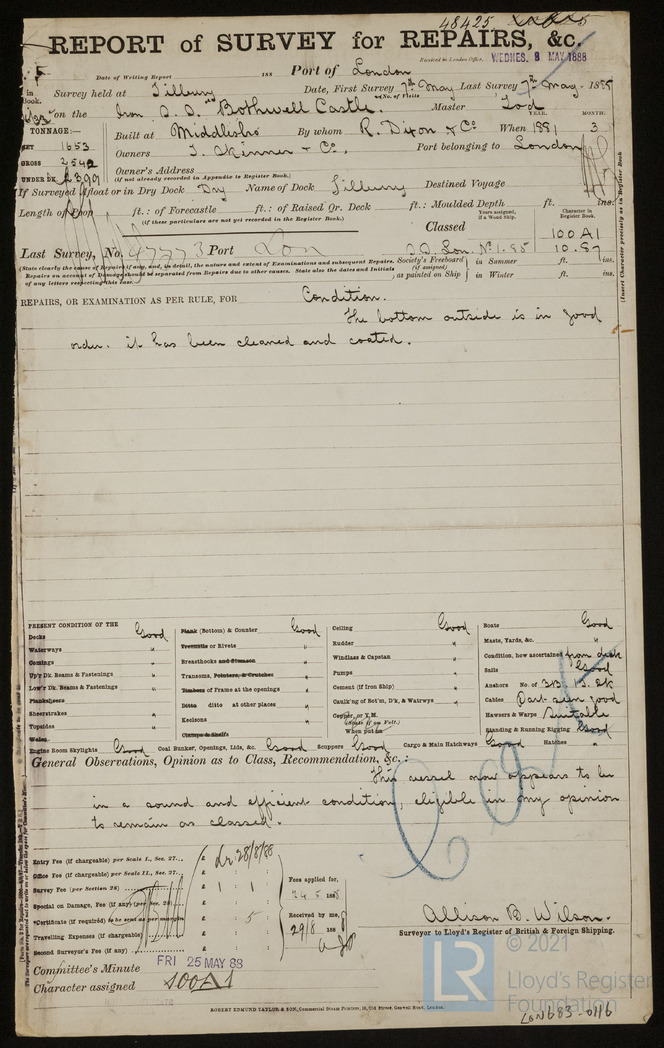 48425
REPORT of SURVEY for REPAIRS, &c.
Received in London Office, WEDNES. 9 MAY 1888
Date of Writing Report 188 Port of London
in Book. Survey held at Tilbury Date, First Survey 7th May Last Survey 7th May 1888
(No. of Visits
on the Iron S.S. "Bothwell Castle. Master Tod
TONNAGE:— YEAR. MONTH.
NET 1653 Built at Middlesbro' By whom R. Dixon & Co When 1881 3
GROSS 2542 Owners T. Skinner & Co. Port belonging to London
UNDER DK. 2399 Owner's Address
(If not already recorded in Appendix to Register Book.)
If Surveyed Afloat or in Dry Dock Dry Name of Dock Tilbury Destined Voyage
Length of Poop ft.: of Forecastle ft.: of Raised Qr. Deck ft.: Moulded Depth ft. ins.
(if these particulars are not yet recorded in the Register Book.)
Years assigned, if a Wood Ship. Character in Register Book
Classed 100A1
Last Survey, No. 47773 Port Lon S.S. Lon. No 1.85 10.87
(State clearly the cause of Repairs if any, and, in detail, the nature and extent of Examinations and subsequent Repairs.
Repairs on account of Damage should be separated from Repairs due to other causes. State also the dates and Initials
of any letters respecting this case.)
Society's Freeboard (if assigned) as painted on Ship in Summer ft. ins.
in Winter ft. ins.
(Insert Character precisely as in Register Book
REPAIRS, OR EXAMINATION AS PER RULE, FOR Condition.
The bottom outside is in good
order. it has been cleaned and coated.
PRESENT CONDITION OF THE
Decks Good
Waterways "
Comings "
Up'r Dk. Beams & Fastenings "
Low'r Dk. Beams & Fastenings "
Planksheers
Sheerstrakes "
Topsides "
Wales
Engine Room Skylights Good
Plank (Bottom) & Counter Good
Treenails or Rivets "
Breasthooks and Stemson "
Transoms, Pointers, & Crutches "
Timbers of Frame at the openings "
Ditto ditto at other places "
Keelsons "
Clamps & Shelfs
Coal Bunker, Openings, Lids, &c. Good
Ceiling Good
Rudder "
Windlass & Capstan "
Pumps "
Cement (if Iron Ship) "
Caulk'ng of Bot'm, D'k, & Watrwys "
Copper, or Y.M.
(State if on Felt.)
When put on
Scuppers Good Cargo & Main Hatchways Good
Boats Good
Masts, Yards, &c. "
Condition, how ascertained from deck
Sails Good
Anchors No. of 3B. 1S. 2K
Cables Part seen good
Hawsers & Warps Suitable
Standing & Running Rigging Good
Hatches "
General Observations, Opinion as to Class, Recommendation, &c.:
This vessel now appears to be
in a sound and efficient condition, eligible in my opinion
to remain as classed.
Entry Fee (if chargeable) per Scale I., Sec. 27... £
Office Fee (if chargeable) per Scale II., Sec. 27... £
Survey Fee (per Section 28) £ 1 : 1
Special on Damage, Fee (if any) (per Sec. 28) £
*Certificate (if required) to be sent as per margin £ : 5
Travelling Expenses (if chargeable) £
Second Surveyor's Fee (if any) £
28/8/88
Fees applied for,
24 5 1888
Received by me,
29/8 188
Allison B. Wilson.
Surveyor to Lloyd's Register of British & Foreign Shipping.
Committee's Minute FRI 25 MAY 88
Character assigned 100A1
ROBERT EDMUND TAYLOR & SON, Commercial Steam Printers, 19, Old Street, Goswell Road, London.
LR
© 2021
Lloyd's Register
Foundation
LON683-0116